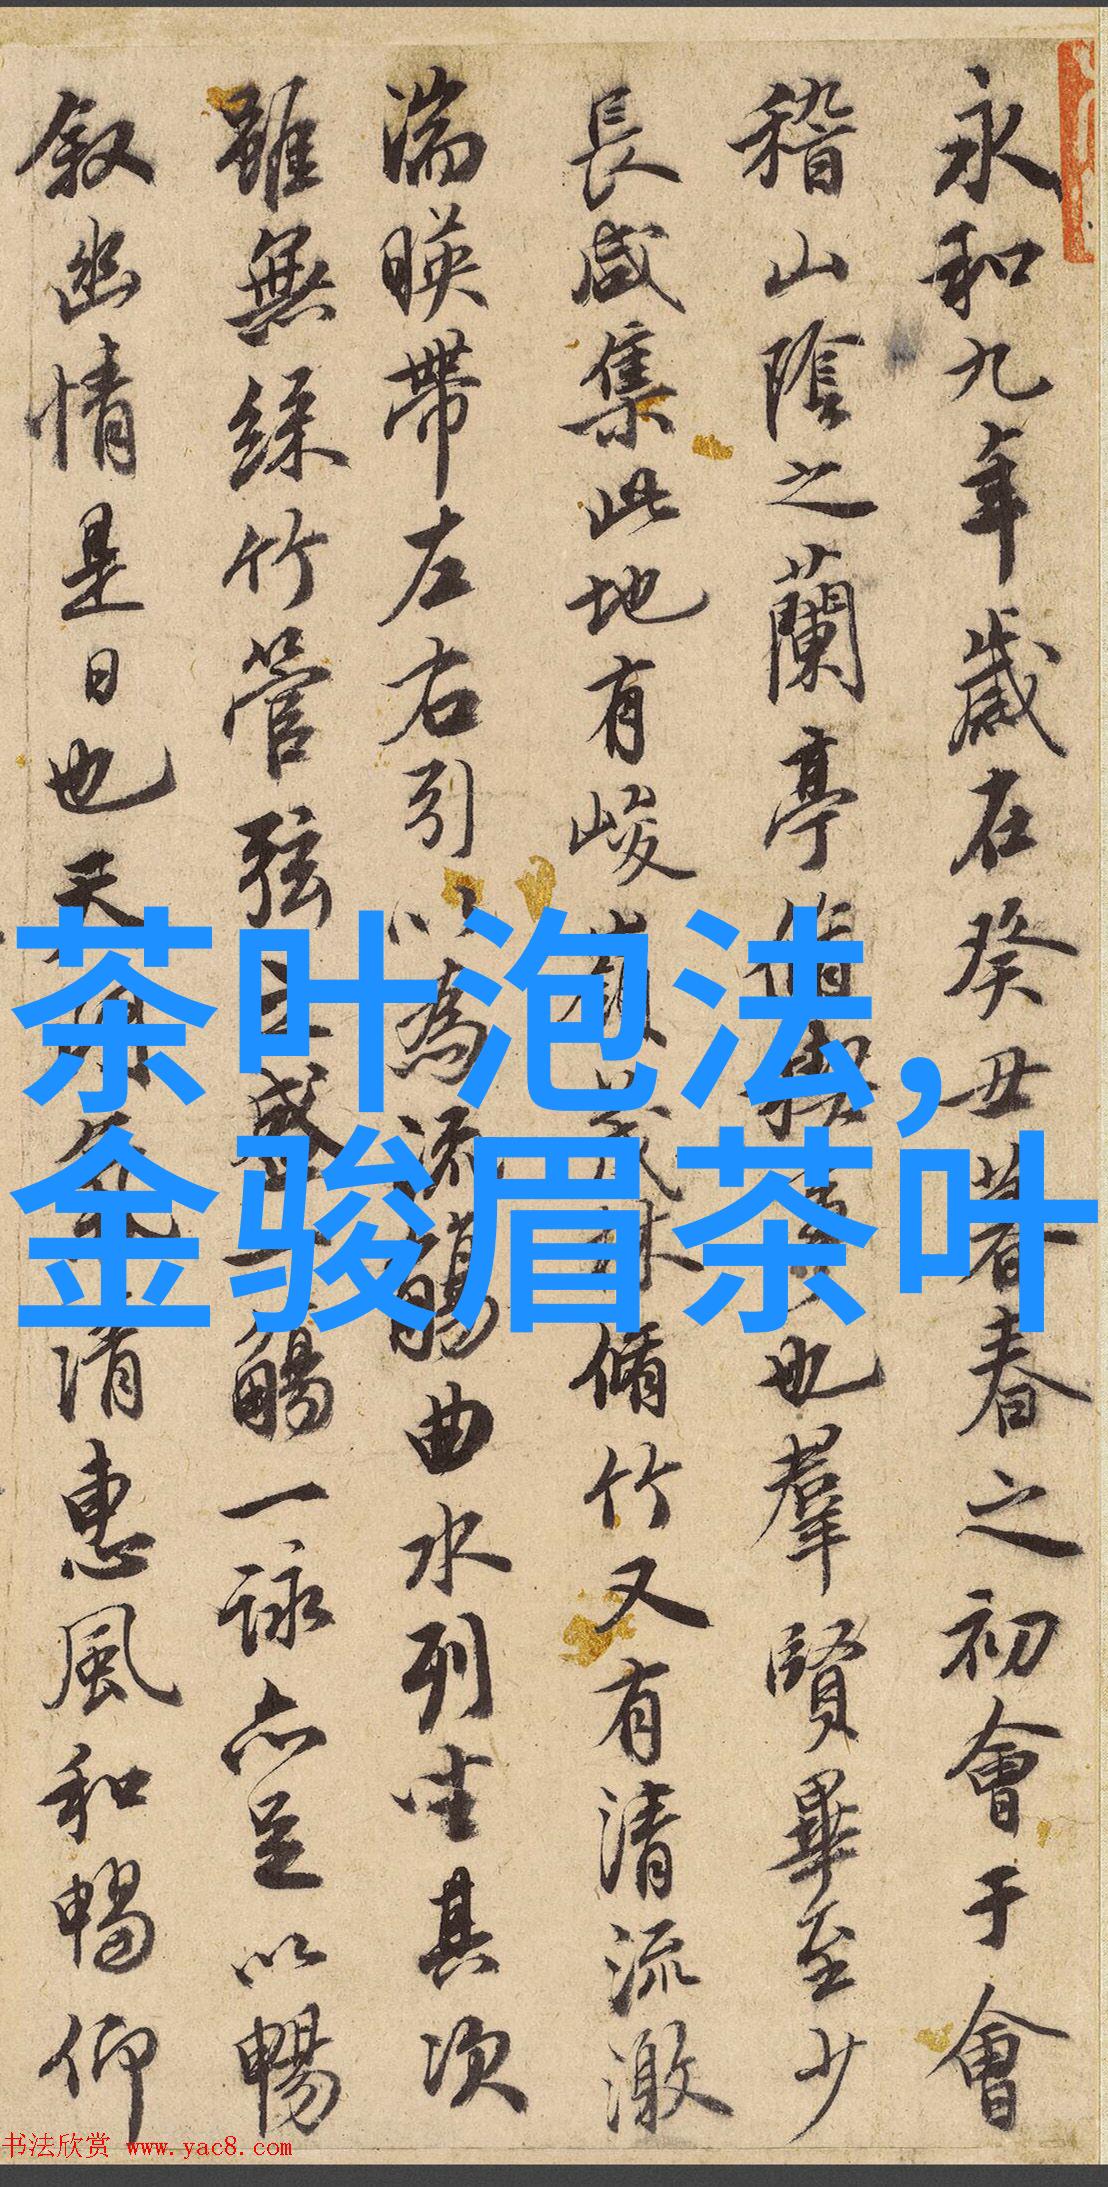 永和九年歲在癸丑暮春之初會于會
稽山陰之蘭亭脩禊事也羣賢畢至少
長咸集此地有峻領茂林脩竹又有清流激
湍暎帶左右引以為流觴曲水列坐其次
雖無絲竹管弦之盛一觴一詠亦足以暢
叙幽情是日也天朗氣清惠風和暢仰
茶叶泡法,
金骏眉茶叶
书法欣赏 www.yac8.com